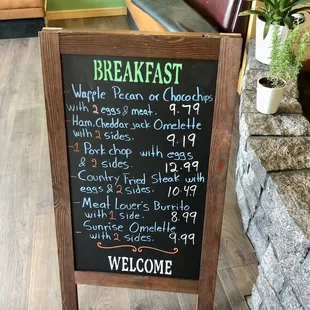 BREAKFAST
Waffle Pecan or Chocochips
with 2 eggs & meat. 9.79
Ham, Cheddar jack Omelette
with 2 sides. 9.19
-1 Pork chop with eggs
& 2 sides. 12.99
-Country Fried Steak with
eggs & 2 sides. 10.49
-Meat Lover's Burrito
with 1 side. 8.99
-Sunrise Omelette
with 2 sides. 9.99
WELCOME